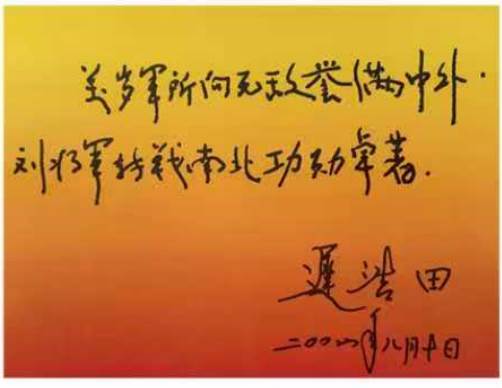 万岁军所向无敌誉满中外.
刘将军转战南北功勋卓著.
迟浩田
二〇〇六年八月十日